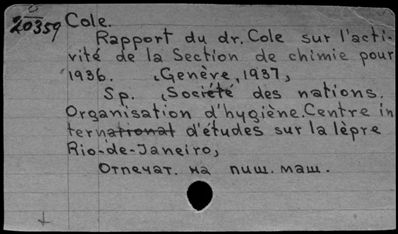 20359
Cole.
Rapport du dr. Cole sur l'acti-
vité de la Section de chimie pour
1936. Genève, 1937,
Sp. Société des nations.
Organisation d'hygiène. Centre in
ternational d'études sur la lèpre
Rio-de-Janeiro,
Отпечат. на пиш. маш.